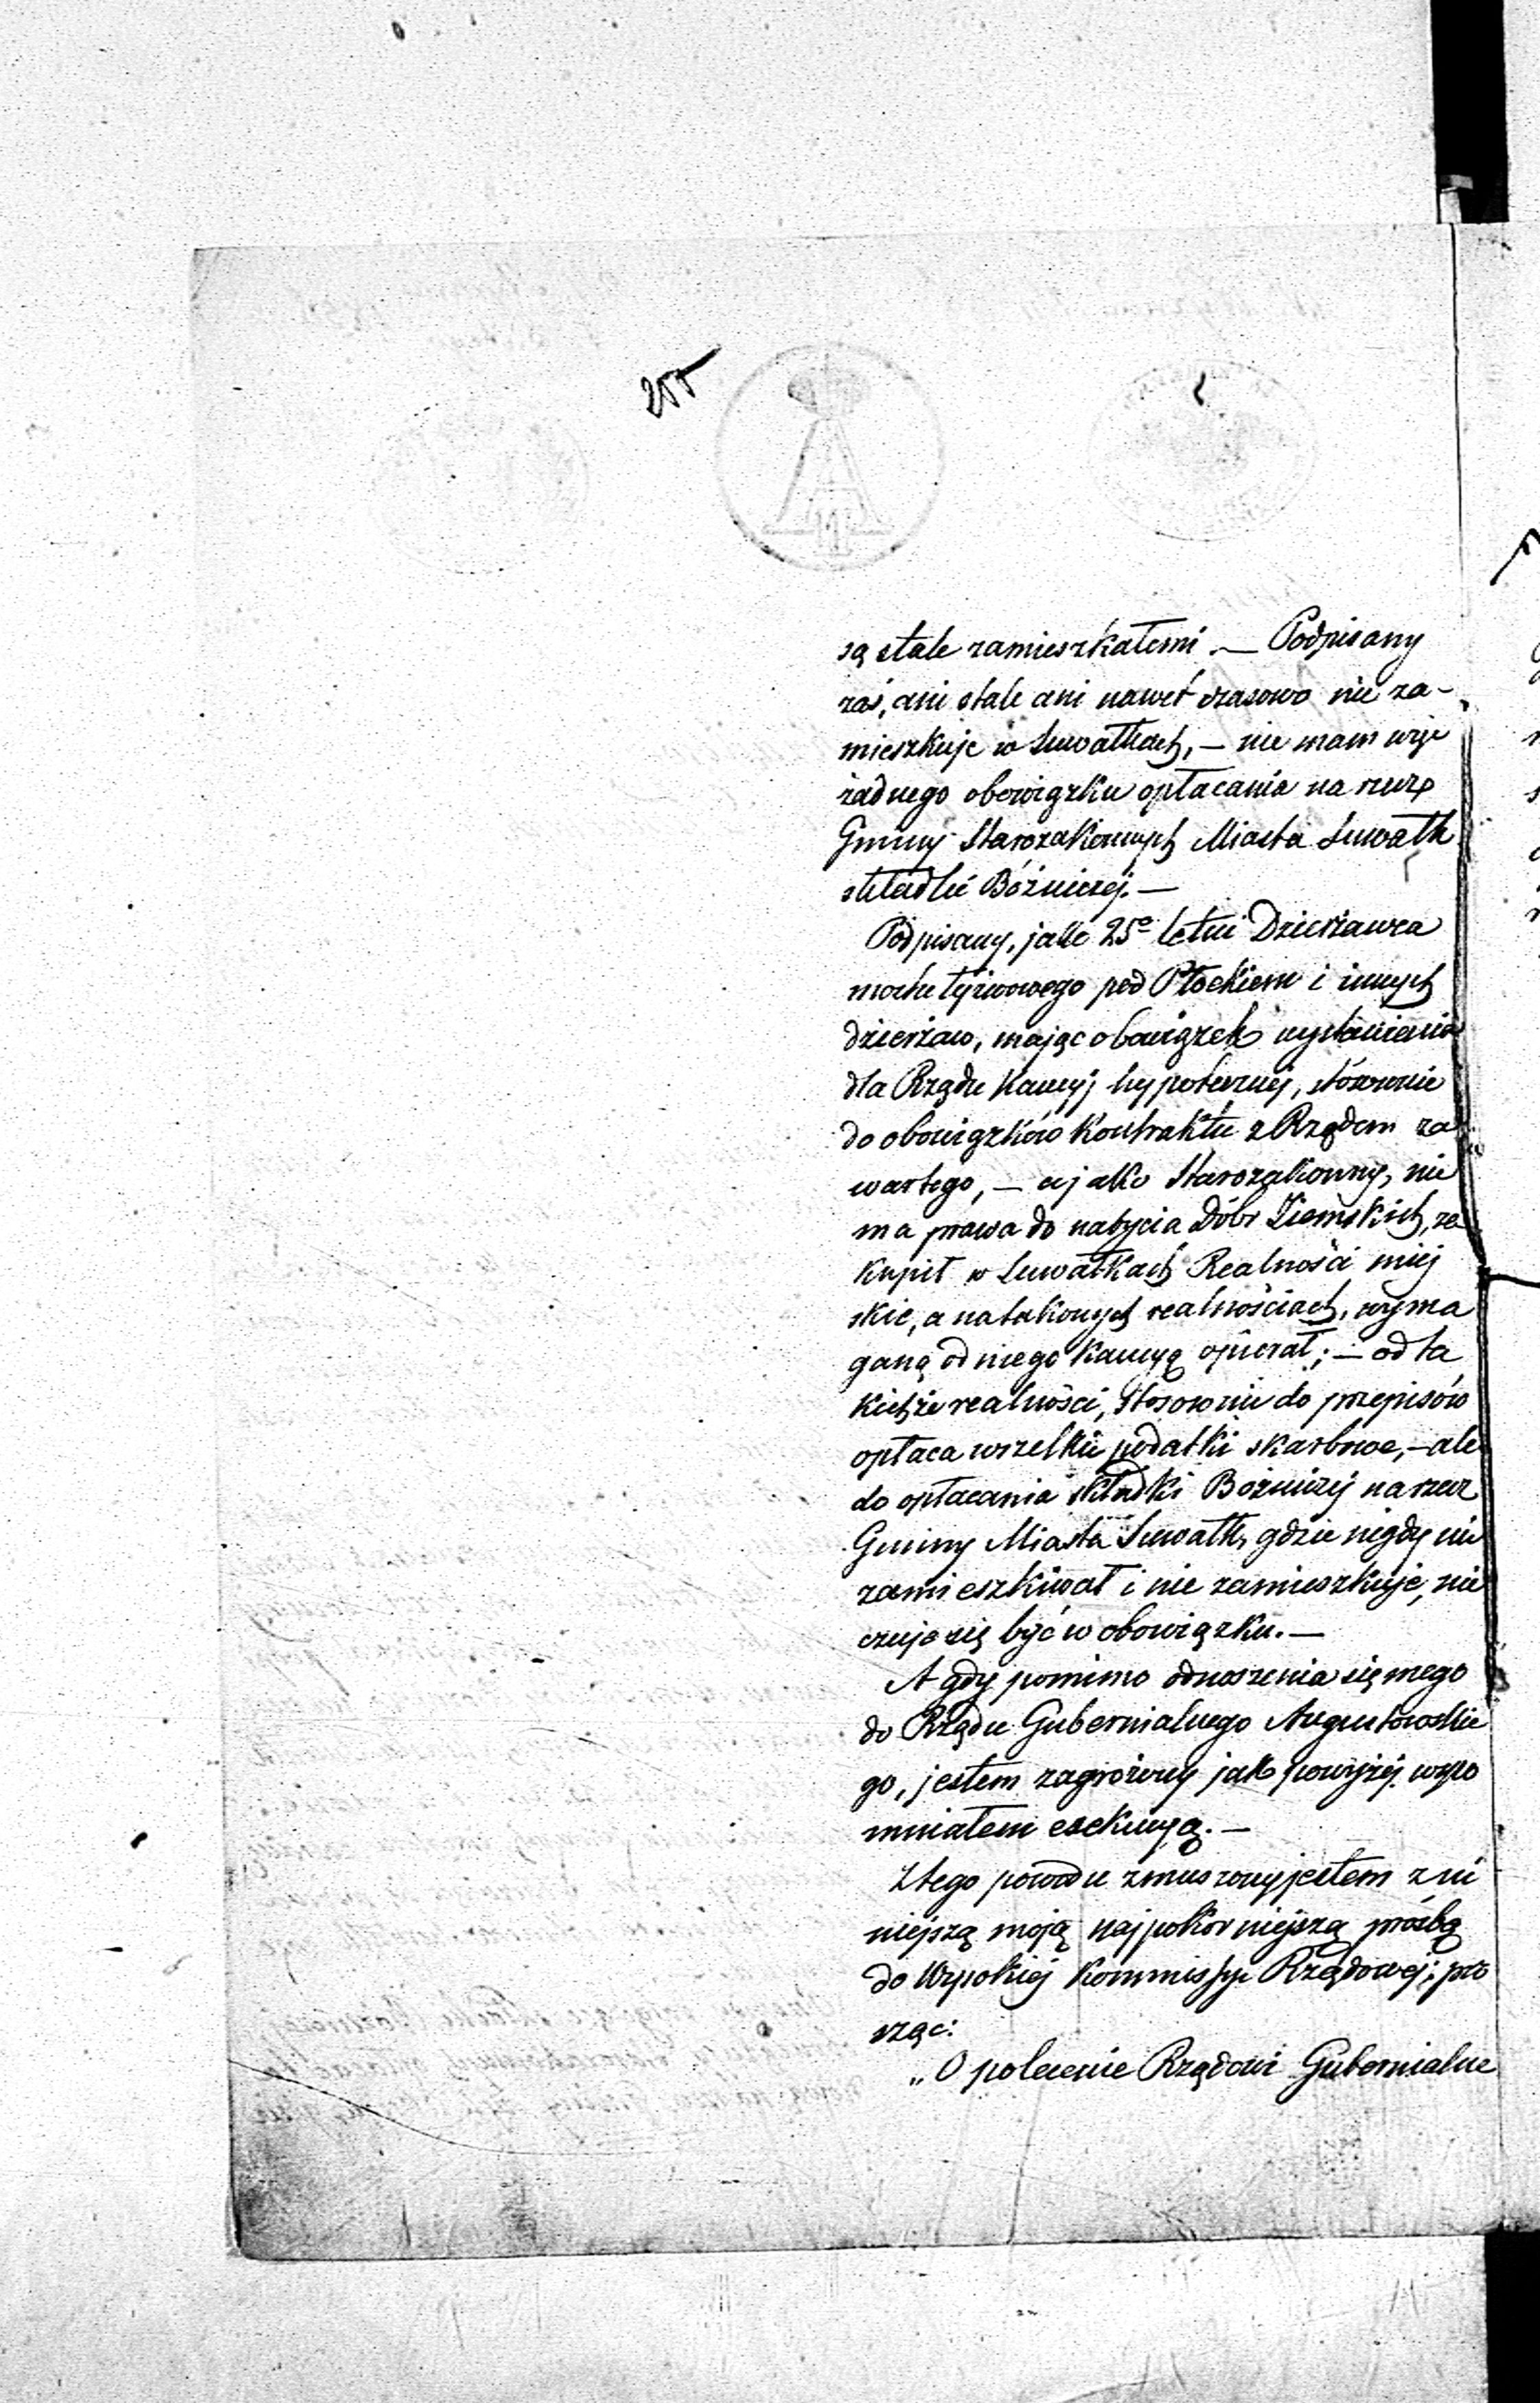 255
są stale zamieszkałemi. — Podpisany
zaś, ani stale ani nawet czasowo nie za-
mieszkuje w Suwałkach, — nie mam więc
żadnego obowiązku opłacania na rzecz
Gminy Starozakonnych Miasta Suwałk
składki Bóżniczej. —
Podpisany, jako 25º letni Dzierżawca
mostu łyżwowego pod Płockiem i innych
dzierżaw, mając obowiązek wystawienia
dla Rządu Kaucyj hypotecznej, stósownie
do obowiązków Kontraktu z Rządem za
wartego, — a jako Starozakonny, nie
ma prawa do nabycia Dóbr Ziemskich, za
kupił w Suwałkach Realności miej
skie, a na takowych realnościach, wyma
ganą od niego Kaucyą opierał; — od ta
kichże realności, Stosownie do przepisów
opłaca wszelkie podatki skarbowe, — ale
do opłacania składki Bożniczej na rzecz
Gminy Miasta Suwałk, gdzie nigdy nie
zamieszkiwał i nie zamieszkuje, nie
czuje się być w obowiązku. —
A gdy pomimo odnoszenia się mego
do Rządu Gubernialnego Augustowskie
go, jestem zagrożony jak powyżej wspo
mniałem exekucyą. —
Z tego powodu zmuszony jestem z ni
niejszą moją najpokorniejszą prośbą
do Wysokiej Kommissyi Rządowej; pro
sząc:
„O polecenie Rządowi Gubernialne